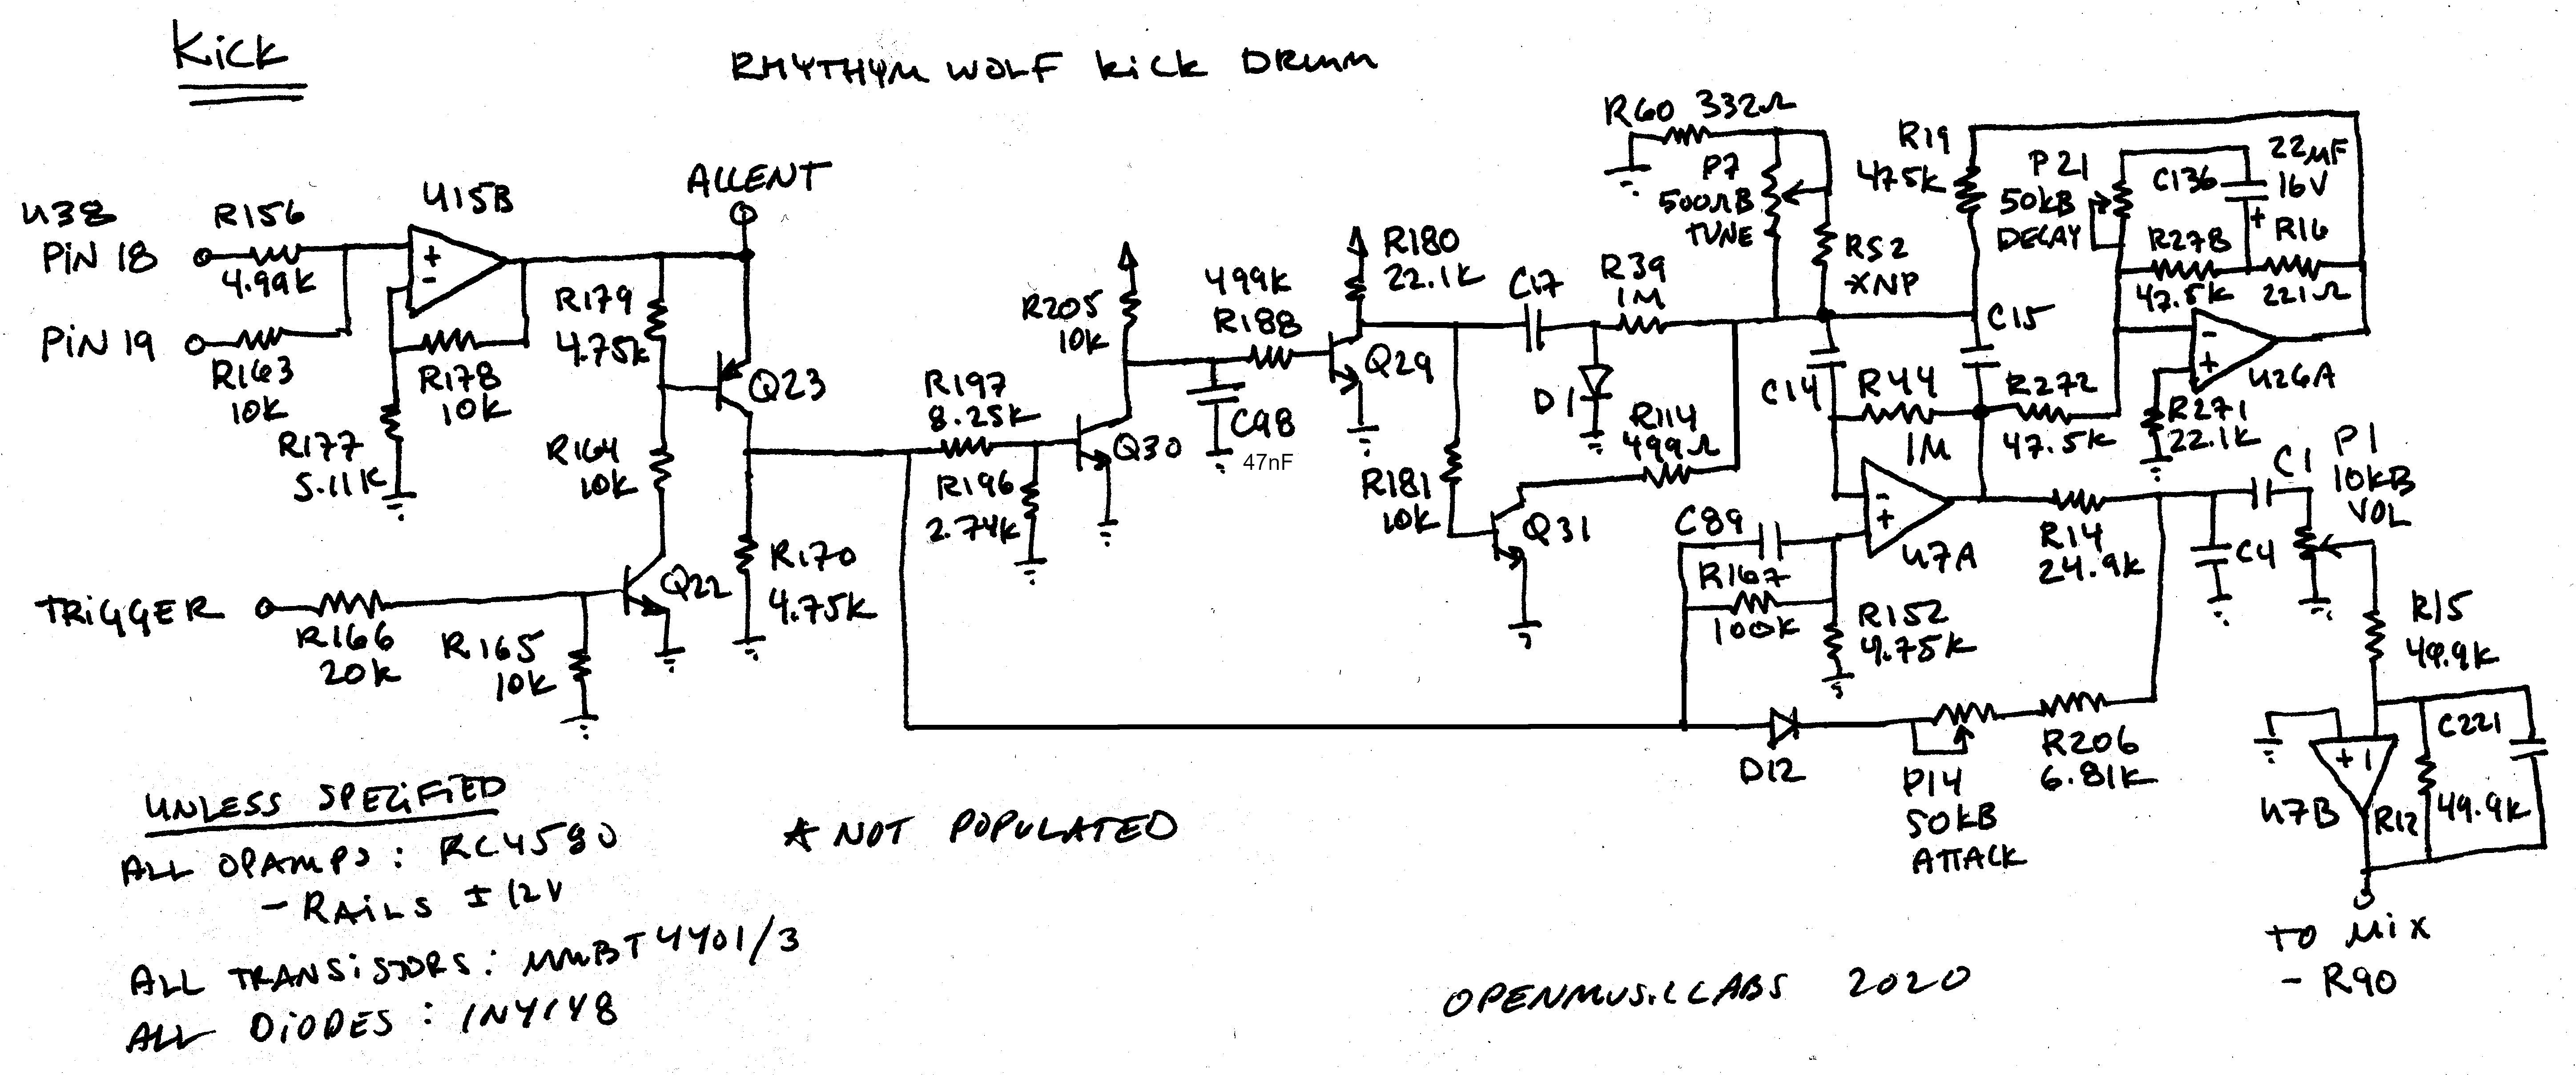 Kick
RHYTHYM WOLF KICK DRUM
U38
PIN 18
R156
4.99K
U15B
+
-
PIN 19
R163
10K
R178
10K
R177
5.11K
ACCENT
R179
4.75K
Q23
R164
10K
R170
4.75K
TRIGGER
R166
20K
R165
10K
Q22
R197
8.25K
R196
2.74K
R205
10K
Q30
499K
R188
C98
47nF
R180
22.1K
Q29
C17
R39
1M
D1
R181
10K
Q31
R114
499Ω
R60 332Ω
P7
500ΩB
TUNE
R52
*NP
R19
475K
C14
C15
R44
1M
R272
47.5K
P21
50KB
DECAY
C136
22µF
16V
+
R278
47.5K
R16
221Ω
-
+
U26A
R271
22.1K
C89
R167
100K
R152
4.75K
-
+
U7A
R14
24.9K
C4
C1
P1
10KB
VOL
R15
49.9K
C221
+
-
U7B
R12
49.9K
D12
P14
50KB
ATTACK
R206
6.81K
TO MIX
- R90
UNLESS SPECIFIED
ALL OPAMPS: RC4580
- RAILS ± 12V
ALL TRANSISTORS: MMBT4401/3
ALL DIODES: 1N4148
* NOT POPULATED
OPENMUSICLABS 2020